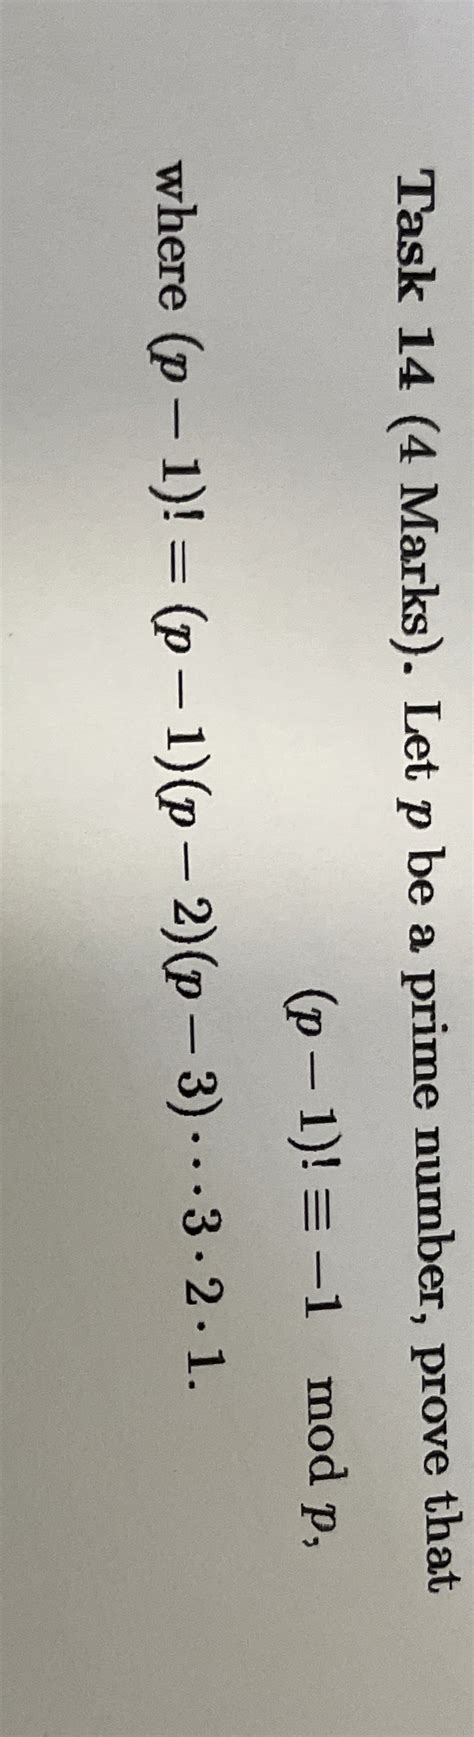 Task 14 (4 Marks). Let p be a prime number, prove that
(p − 1)! ≡ −1 mod p,
where (p − 1)! = (p − 1)(p − 2)(p − 3) · · · 3 · 2 · 1.